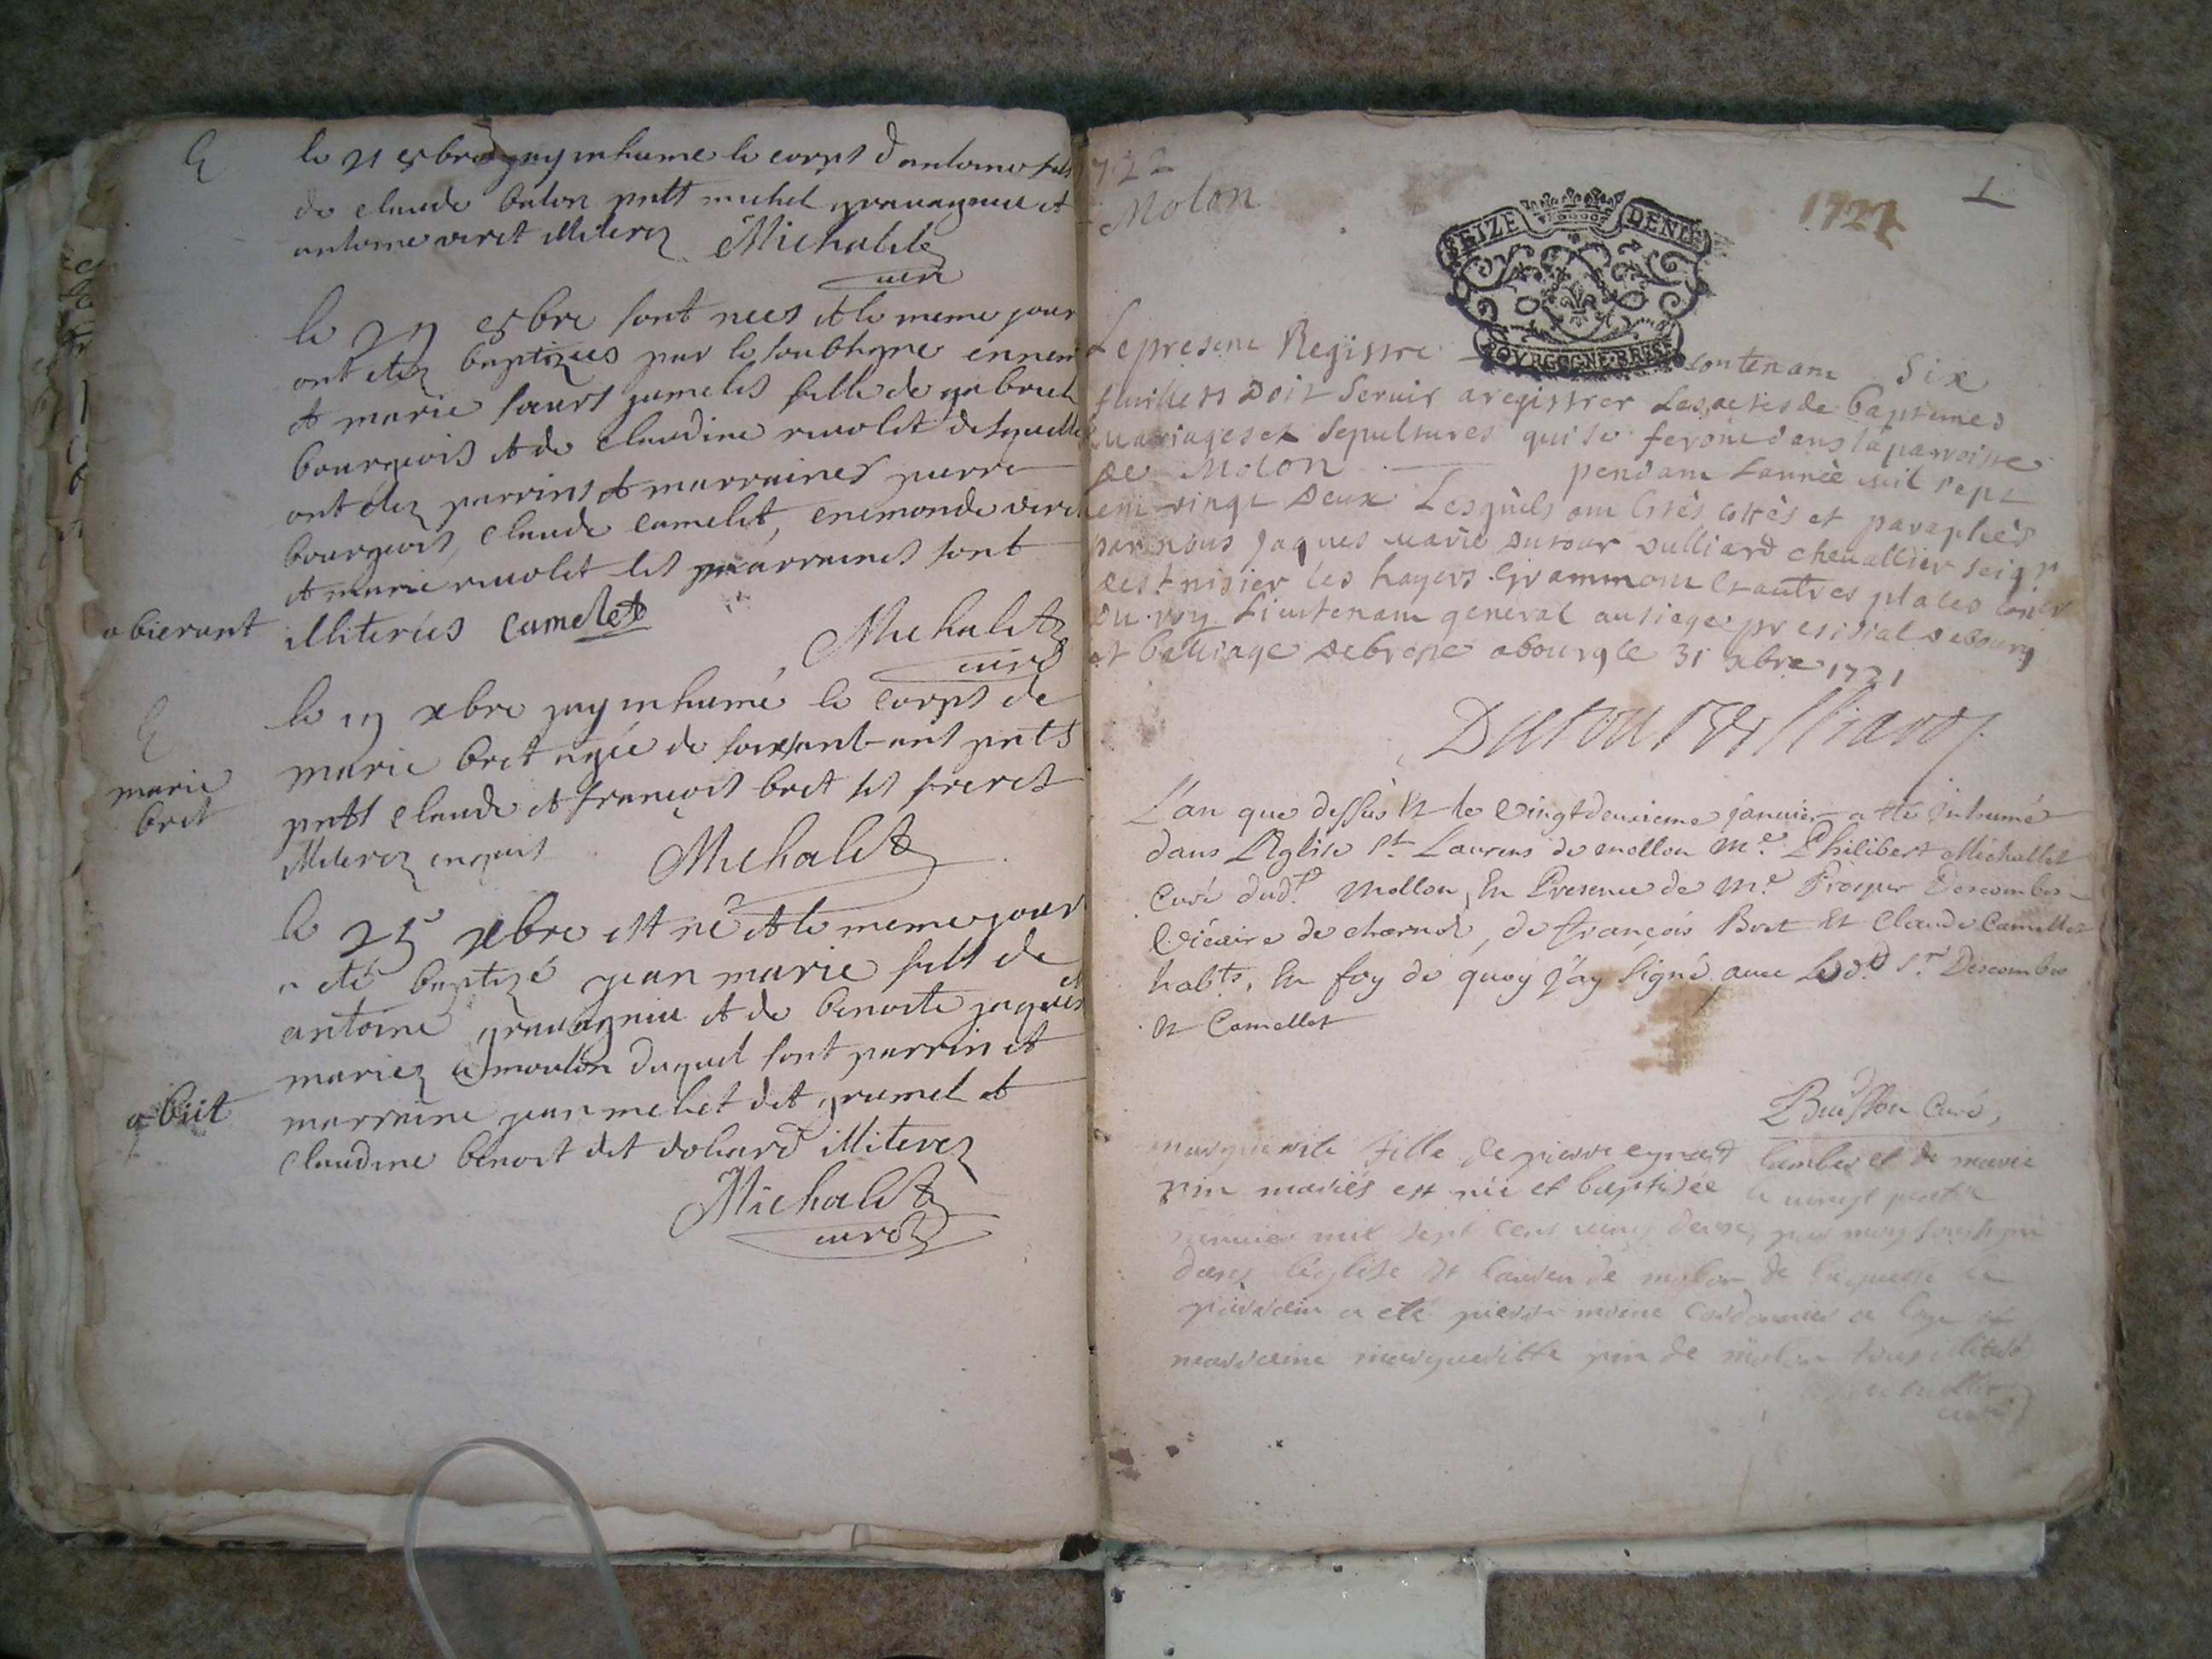 le 21 9bre jay inhume le corps d antoine fils
de claude balon pntt michel gravagneu et
antoine veret illiterez Michalet
curé
le 27 9bre sont nees et le meme jour
ont etez baptizees par le soubsigne ennem
et marie soeurs jumeles fille de gabriel
bourgeois et de claudine rivolet desquelle
ont etez parrins et marraines pierre
bourgeois, claude camelet, enemonde veret
et marie rivolet les marraines sont
illiterées camelet
obierunt
Michalet
curé
le 19 xbre jay inhumé le corps de
marie bret agée de soixante ans pntts
pntts claude et françois bret ses freres
illiterez enquis Michalet
marie
bret
le 25 xbre est né et le meme jour
a eté baptizé jean marie fils de
antoine gravagneu et de benoite jaques
mariez a moulon duquel sont parrin et
marraine jean melet dit grumel et
claudine benoit dit dohard illiterez
obiit
Michalet
curé
722
Molon
1722
1
SEIZE DENIE
BOVRGOGNE BRESSE
Le present Registre contenant Six
fleuillets Doit Servir a registrer Les actes de baptemes
mariages et Sepultures qui se feront dans la parroisse
de Molon pendant Lannèe mil sept
cent vingt Deux Lesquels ont Estès cottès et paraphès
par nous Jaques marie dutour vulliard chevallier seigr
de st nisier les hayers Grammont et autres places Coner
Du roy Lieutenant general au siege presidial de bourg
et balliage de bresse a bourg le 31 xbre 1721
Dutour Vulliard
L'an que dessus Et le Vingtdeuxieme janvier a eté Inhumé
dans L'Eglise St Laurens de mollon Me Philibert Michallet
Curé dudt Mollon, En Presence de Me Prosper Descombes
Vicaire de charnod, de françois Bret Et Claude Camellet
habts, En foy de quoy j'ay signé avec Ledt Sr Descombes
Et Camellet
Buisson Curé,
marguerite fille de pierre eynard lambert et de marie
pin mariés est née et baptisée le vingt quatre
janvier mil sept cens vingt deux, par moy soubsigné
dans léglise St lauren de molon de laquelle le
parrein a eté pierre moine cordonnier a et
marraine margueritte pin de molon tous illiteré
curé